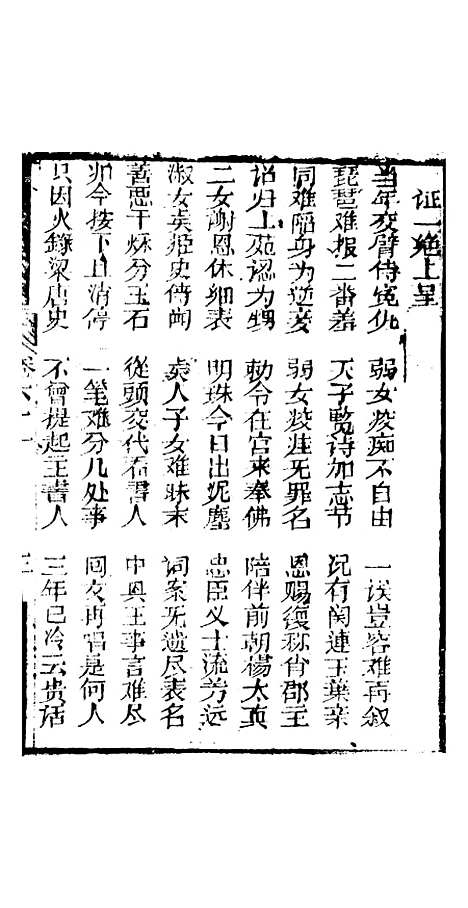 证一绝上呈
当年交臂侍冤仇 弱女痴痴不自由 一误岂容难再叙
琵琶难报二番羞 天子覧诗加志节 况有関連玉葉亲
同难陷身为逆妾 弱女疫涯无罪名 恩赐復称肯郡主
诏归上苑认为甥 勅令在宫来奉佛 陪伴前朝楊太真
二女谢恩休细表 明珠今日出泥塵 忠臣义士流芳远
淑女美姬史传闻 美人子女难昧末 词案无遗尽表名
善恶干秌分玉石 從頭交代看書人 中兴王事言难尽
帅今按下且消停 一笔难分几处事 囬文再唱是何人
只因火錄梁唐史 不曾提起主書人 三年已冷云贵话
卷六十一
三